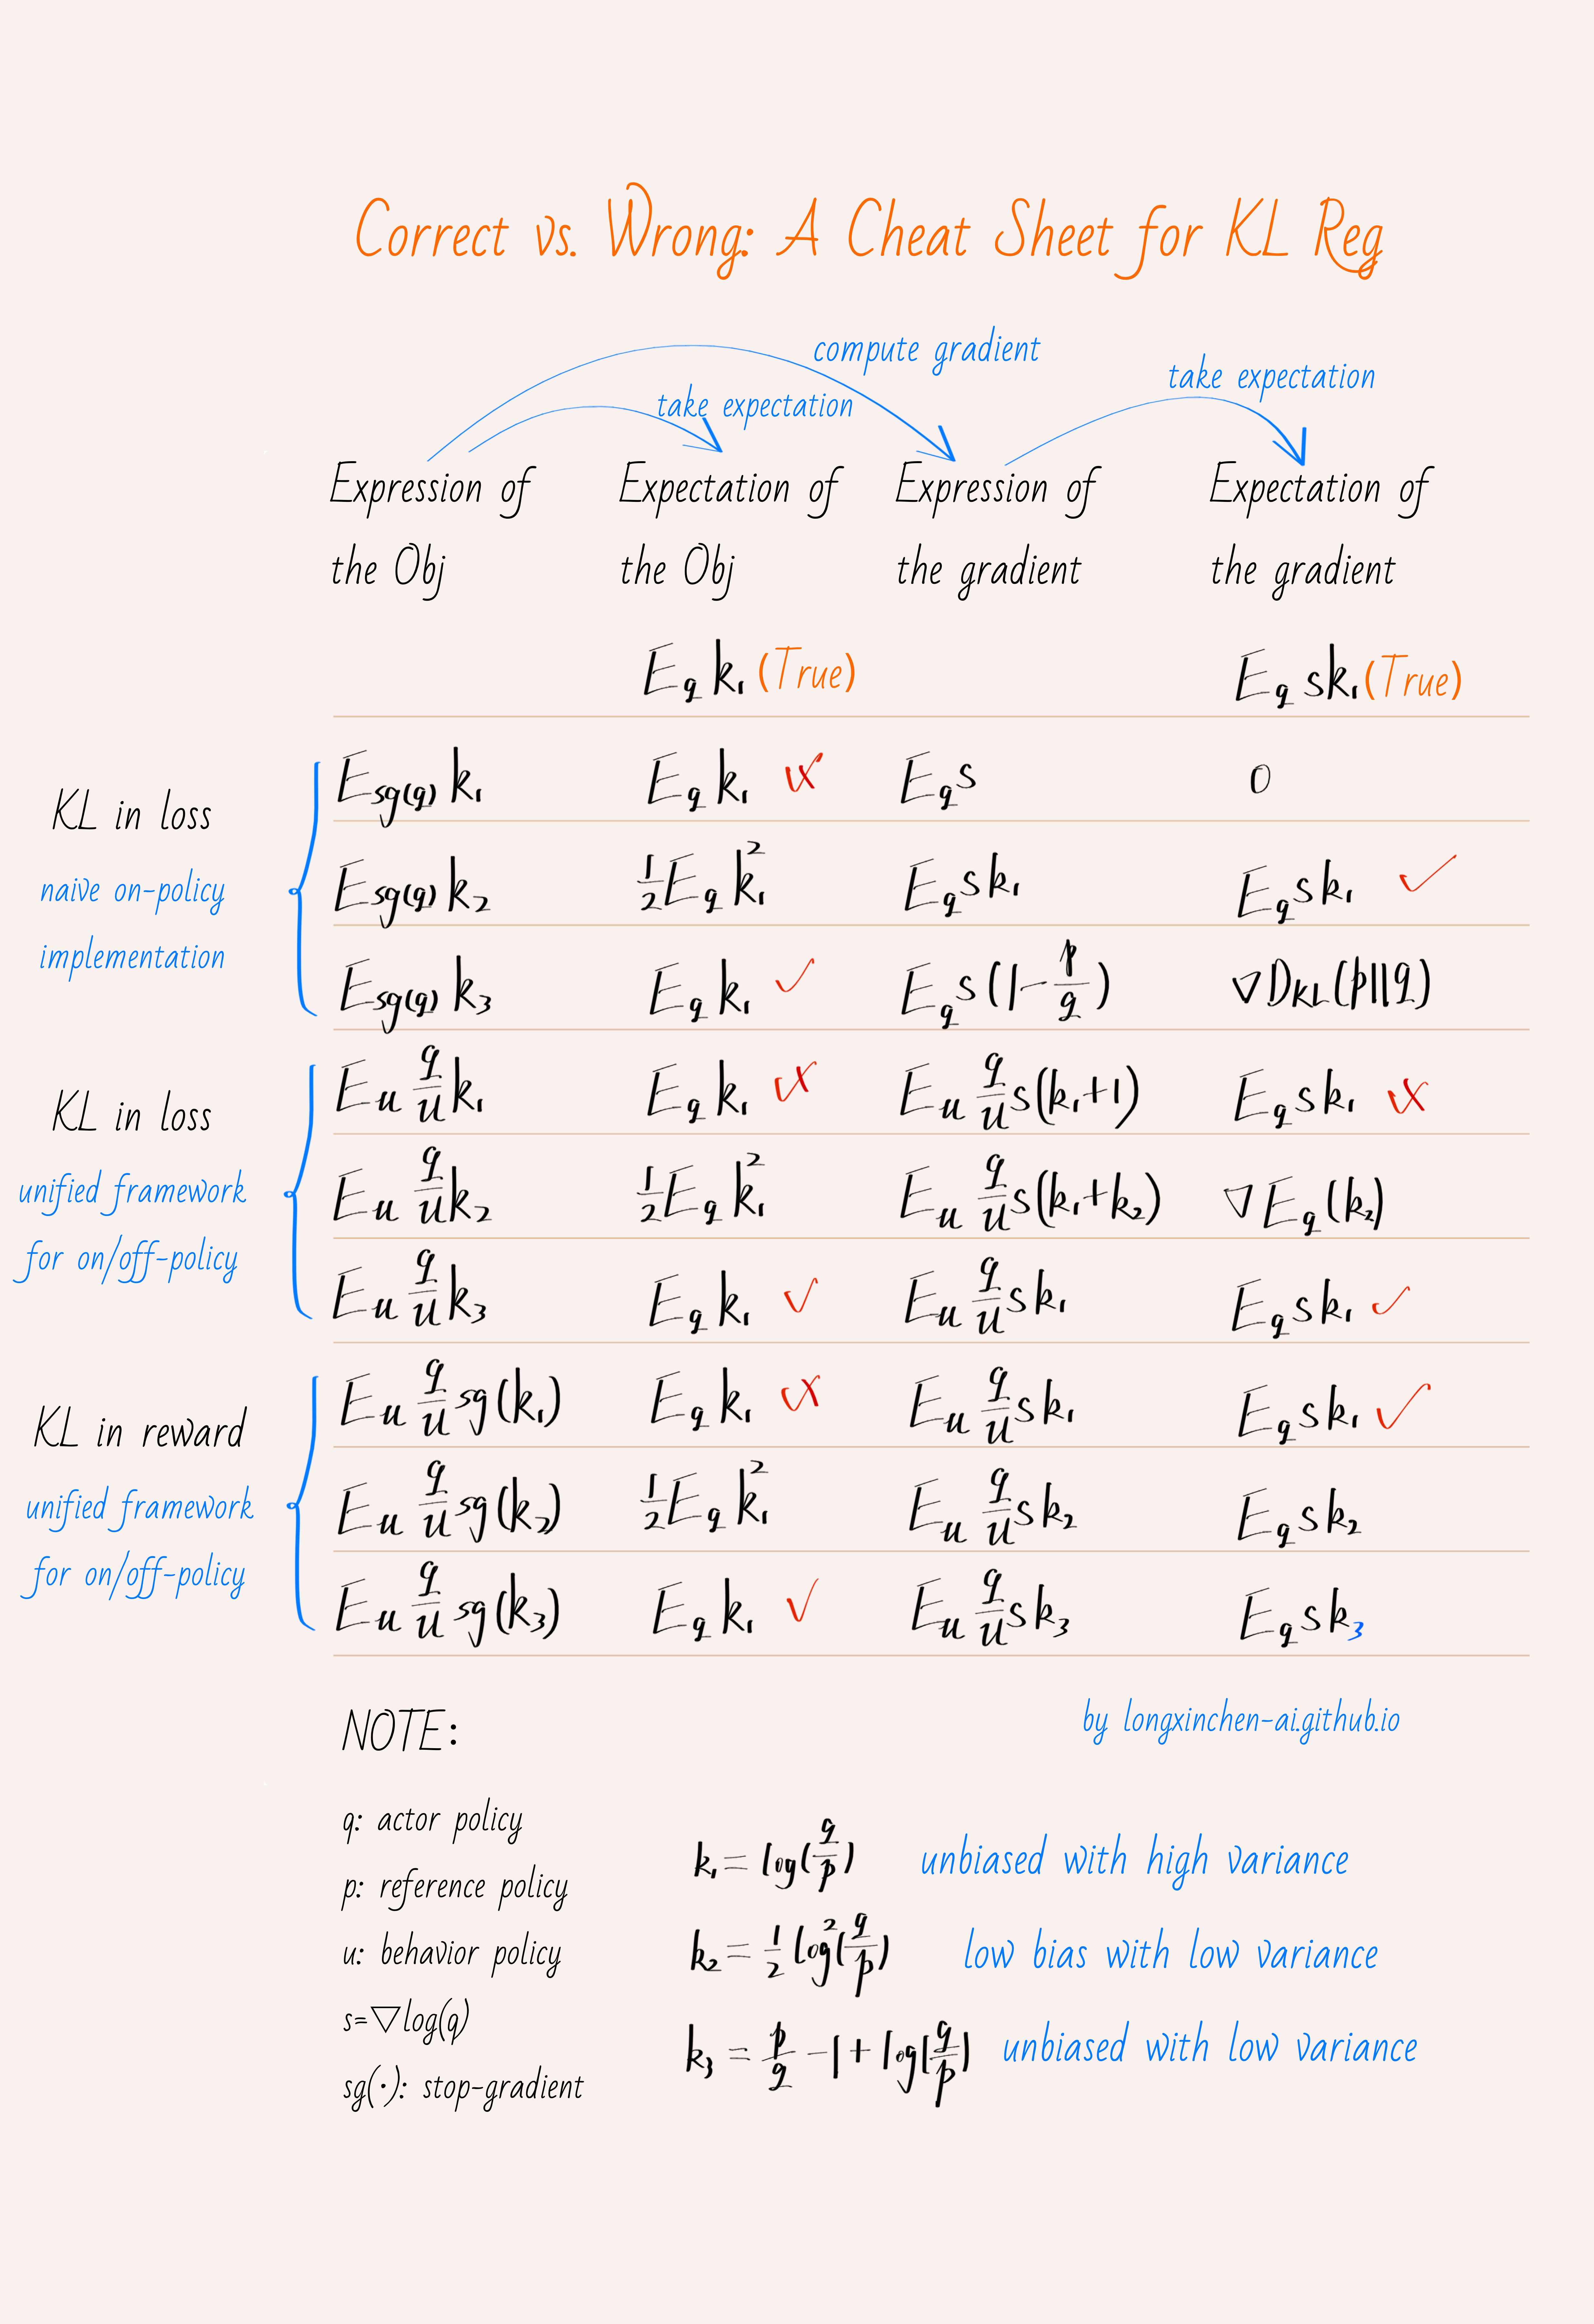 Correct vs. Wrong: A Cheat Sheet for KL Reg
compute gradient
take expectation
take expectation
Expression of the Obj
Expectation of the Obj
Expression of the gradient
Expectation of the gradient
E_q k₁ (True)
E_q sk₁ (True)
KL in loss
naive on-policy
implementation
E_sg(q) k₁
E_q k₁
E_q s
0
E_sg(q) k₂
½ E_q k₁²
E_q s k₁
E_q s k₁ ✓
E_sg(q) k₃
E_q k₁ ✓
E_q s (1 - p/q)
∇D_KL(p||q)
KL in loss
unified framework
for on/off-policy
E_u q/u k₁
E_q k₁
E_u q/u s(k₁+1)
E_q s k₁
E_u q/u k₂
½ E_q k₁²
E_u q/u s(k₁+k₂)
∇E_q (k₂)
E_u q/u k₃
E_q k₁ ✓
E_u q/u s k₁
E_q s k₁ ✓
KL in reward
unified framework
for on/off-policy
E_u q/u sg(k₁)
E_q k₁
E_u q/u s k₁
E_q s k₁ ✓
E_u q/u sg(k₂)
½ E_q k₁²
E_u q/u s k₂
E_q s k₂
E_u q/u sg(k₃)
E_q k₁ ✓
E_u q/u s k₃
E_q s k₃
NOTE:
by longxinchen-ai.github.io
q: actor policy
p: reference policy
u: behavior policy
s=∇log(q)
sg(·): stop-gradient
k₁ = log(q/p) unbiased with high variance
k₂ = ½ log²(q/p) low bias with low variance
k₃ = p/q - 1 + log(q/p) unbiased with low variance